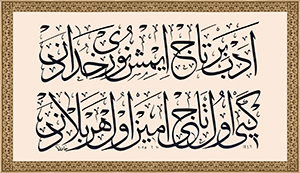 ادب بر تاج ايمش نور خدادن
گی اول تاجی امین اول هر بلادن